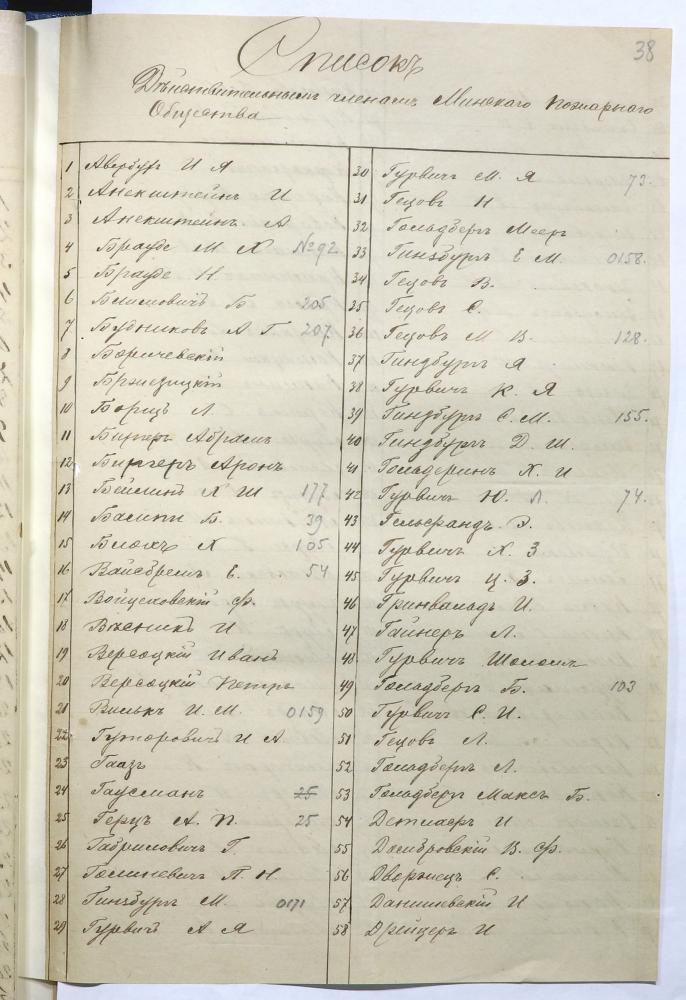 38
Списокъ
Дѣйствительнымъ членамъ Минскаго Пожарнаго
Общества
1 Авербухъ И Я
2 Анекштейнъ И
3 Анекштейнъ А
4 Брауде М Х №92
5 Брауде Н
6 Б. 205
7 Будниковъ А Г 207
8 Боричевскій
9
10 Борцъ Л.
11 Абрамъ
12 Биргеръ Аронъ
13 Бейлинъ Л Ш 177
14 Б. 39
15 Блохъ Х 105
16 Вайсбремъ Е. 54
17 Войцеховскій Ф.
18 Вѣсникъ И
19 Версоцкій Иванъ
20 Версоцкій Петръ
21 Вильк И. М. 0159
22 Гуторовичъ И А.
23 Гаазъ
24 Гаусманъ 25
25 Герцъ А. П. 25
26 Габриловичъ Г.
27 П. Н
28 Гинзбургъ М. 0171
29 Гурвичъ А Я
30 Гурвичъ М. Я 73.
31 Гецовъ Н
32 Гольдбергъ Мееръ
33 Гинзбургъ Е М. 0158.
34 Гецовъ В.
35 Гецовъ С.
36 Гецовъ М В. 128.
37 Гинцбургъ Я
38 Гурвичъ К. Я
39 Гинзбургъ С. М. 155.
40 Гинцбургъ Д. Ш.
41 Х. И
42 Гурвичъ Ю. Л. 74.
43 Гельфандъ Э.
44 Гурвичъ Х. З
45 Гурвичъ Ц. З.
46 Гринвальдъ И.
47 Гайнеръ Л.
48 Гурвичъ Шоломъ
49 Гольдбергъ Б. 103
50 Гурвичъ С. И.
51 Гецовъ Л.
52 Гольдбергъ Л.
53 Гольдбергъ Максъ Б.
54 И
55 Домбровскій В. Ф.
56 Дворжецъ С.
57 Данишевскій И
58 Дрейцеръ И